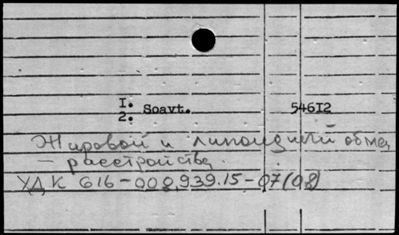 I.
Soavt. 546I2
2.
Жировой и липоидный обмен
— расстройства.
УДК 616-008.939.15-07(08)